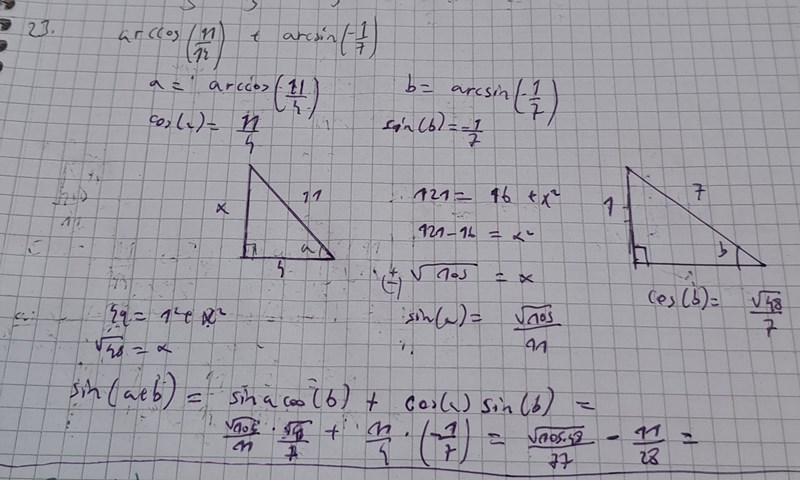 23. arccos(11/14) + arcsin(-1/7)
a = arccos(11/4) b = arcsin(-1/7)
cos(a) = 11/4 sin(b) = -1/7
x 11 a 4
121 = 16 + x²
121-16 = x²
(+/-) √105 = x
sin(a) = √105/11
1 7 b
cos(b) = √48/7
49 = 1² + x²
√48 = x
sin(a+b) = sin a cos(b) + cos(a) sin(b) =
√105/11 · √48/7 + 11/4 · (-1/7) = √105·48/77 - 11/28 =